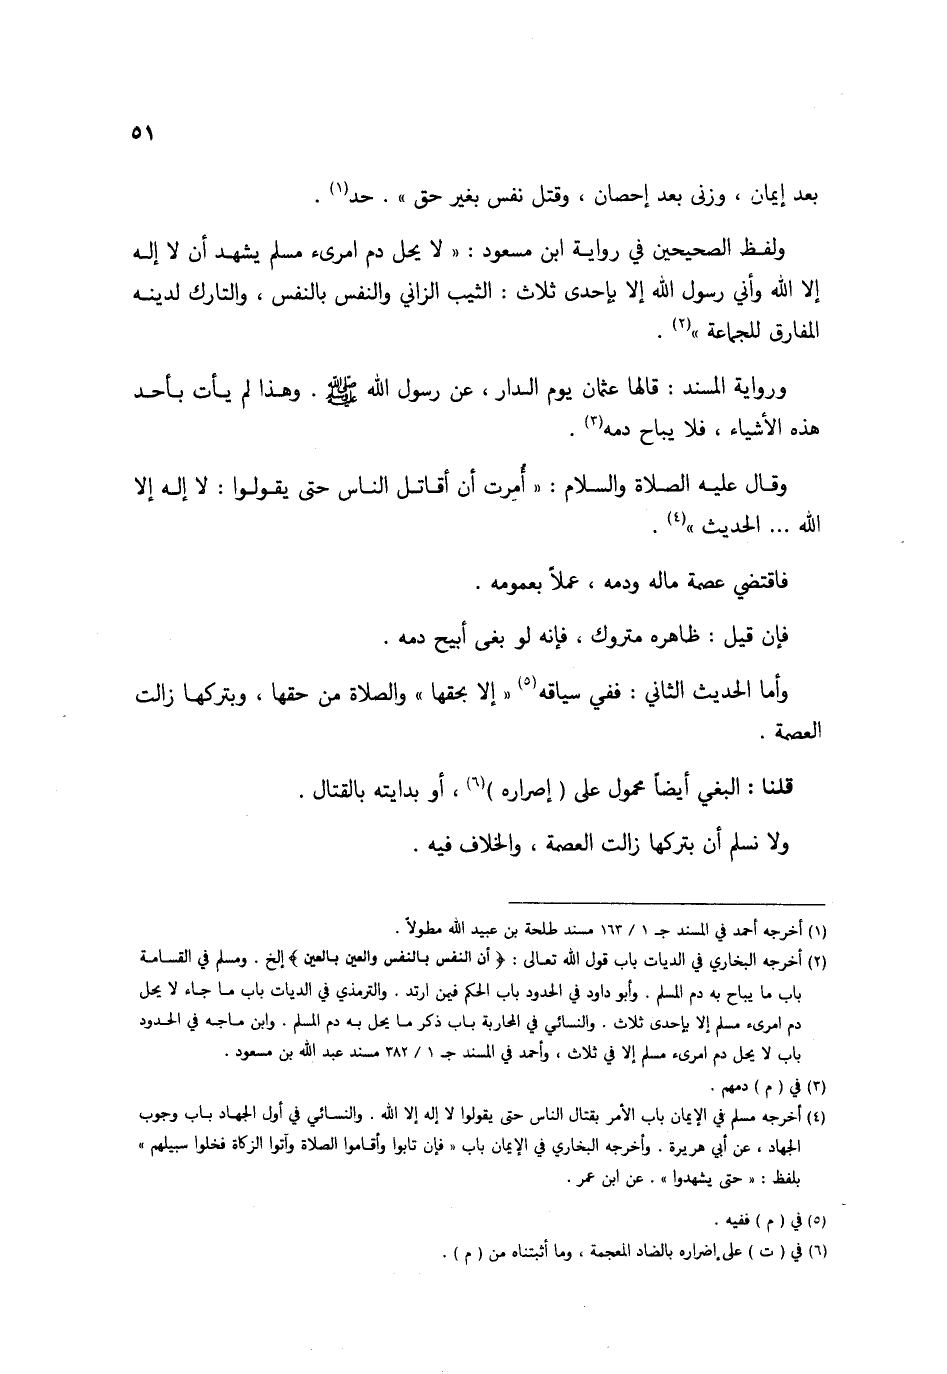 ٥١
بعد إيمان ، وزنى بعد إحصان ، وقتل نفس بغير حق » . حد(١) .
ولفظ الصحيحين في رواية ابن مسعود : « لا يحل دم امرىء مسلم يشهد أن لا إله
إلا الله وأني رسول الله إلا بإحدى ثلاث : الثيب الزاني والنفس بالنفس ، والتارك لدينه
المفارق للجماعة »(٢) .
ورواية المسند : قالها عثمان يوم الدار ، عن رسول الله ﷺ . وهذا لم يأت بأحد
هذه الأشياء ، فلا يباح دمه(٣) .
وقال عليه الصلاة والسلام : « أُمِرت أن أقاتل الناس حتى يقولوا : لا إله إلا
الله ... الحديث »(٤) .
فاقتضي عصمة ماله ودمه ، عملاً بعمومه .
فإن قيل : ظاهره متروك ، فإنه لو بغى أبيح دمه .
وأما الحديث الثاني : ففي سياقه(٥) « إلا بحقها » والصلاة من حقها ، وبتركها زالت
العصمة .
قلنا : البغي أيضاً محمول على ( إصراره )(٦) ، أو بدايته بالقتال .
ولا نسلم أن بتركها زالت العصمة ، والخلاف فيه .
(١) أخرجه أحمد في المسند جـ ١ / ١٦٣ مسند طلحة بن عبيد الله مطولاً .
(٢) أخرجه البخاري في الديات باب قول الله تعالى : ﴿ أن النفس بالنفس والعين بالعين ﴾ إلخ . ومسلم في القسامة
باب ما يباح به دم المسلم . وأبو داود في الحدود باب الحكم فيمن ارتد . والترمذي في الديات باب ما جاء لا يحل
دم امرىء مسلم إلا بإحدى ثلاث . والنسائي في المحاربة باب ذكر ما يحل به دم المسلم . وابن ماجه في الحدود
باب لا يحل دم امرىء مسلم إلا في ثلاث ، وأحمد في المسند جـ ١ / ٣٨٢ مسند عبد الله بن مسعود .
(٣) في ( م ) دمهم .
(٤) أخرجه مسلم في الإيمان باب الأمر بقتال الناس حتى يقولوا لا إله إلا الله . والنسائي في أول الجهاد باب وجوب
الجهاد ، عن أبي هريرة . وأخرجه البخاري في الإيمان باب « فإن تابوا وأقاموا الصلاة وآتوا الزكاة فخلوا سبيلهم »
بلفظ : « حتى يشهدوا » . عن ابن عمر .
(٥) في ( م ) ففيه .
(٦) في ( ت ) على إضراره بالضاد المعجمة ، وما أثبتناه من ( م ) .